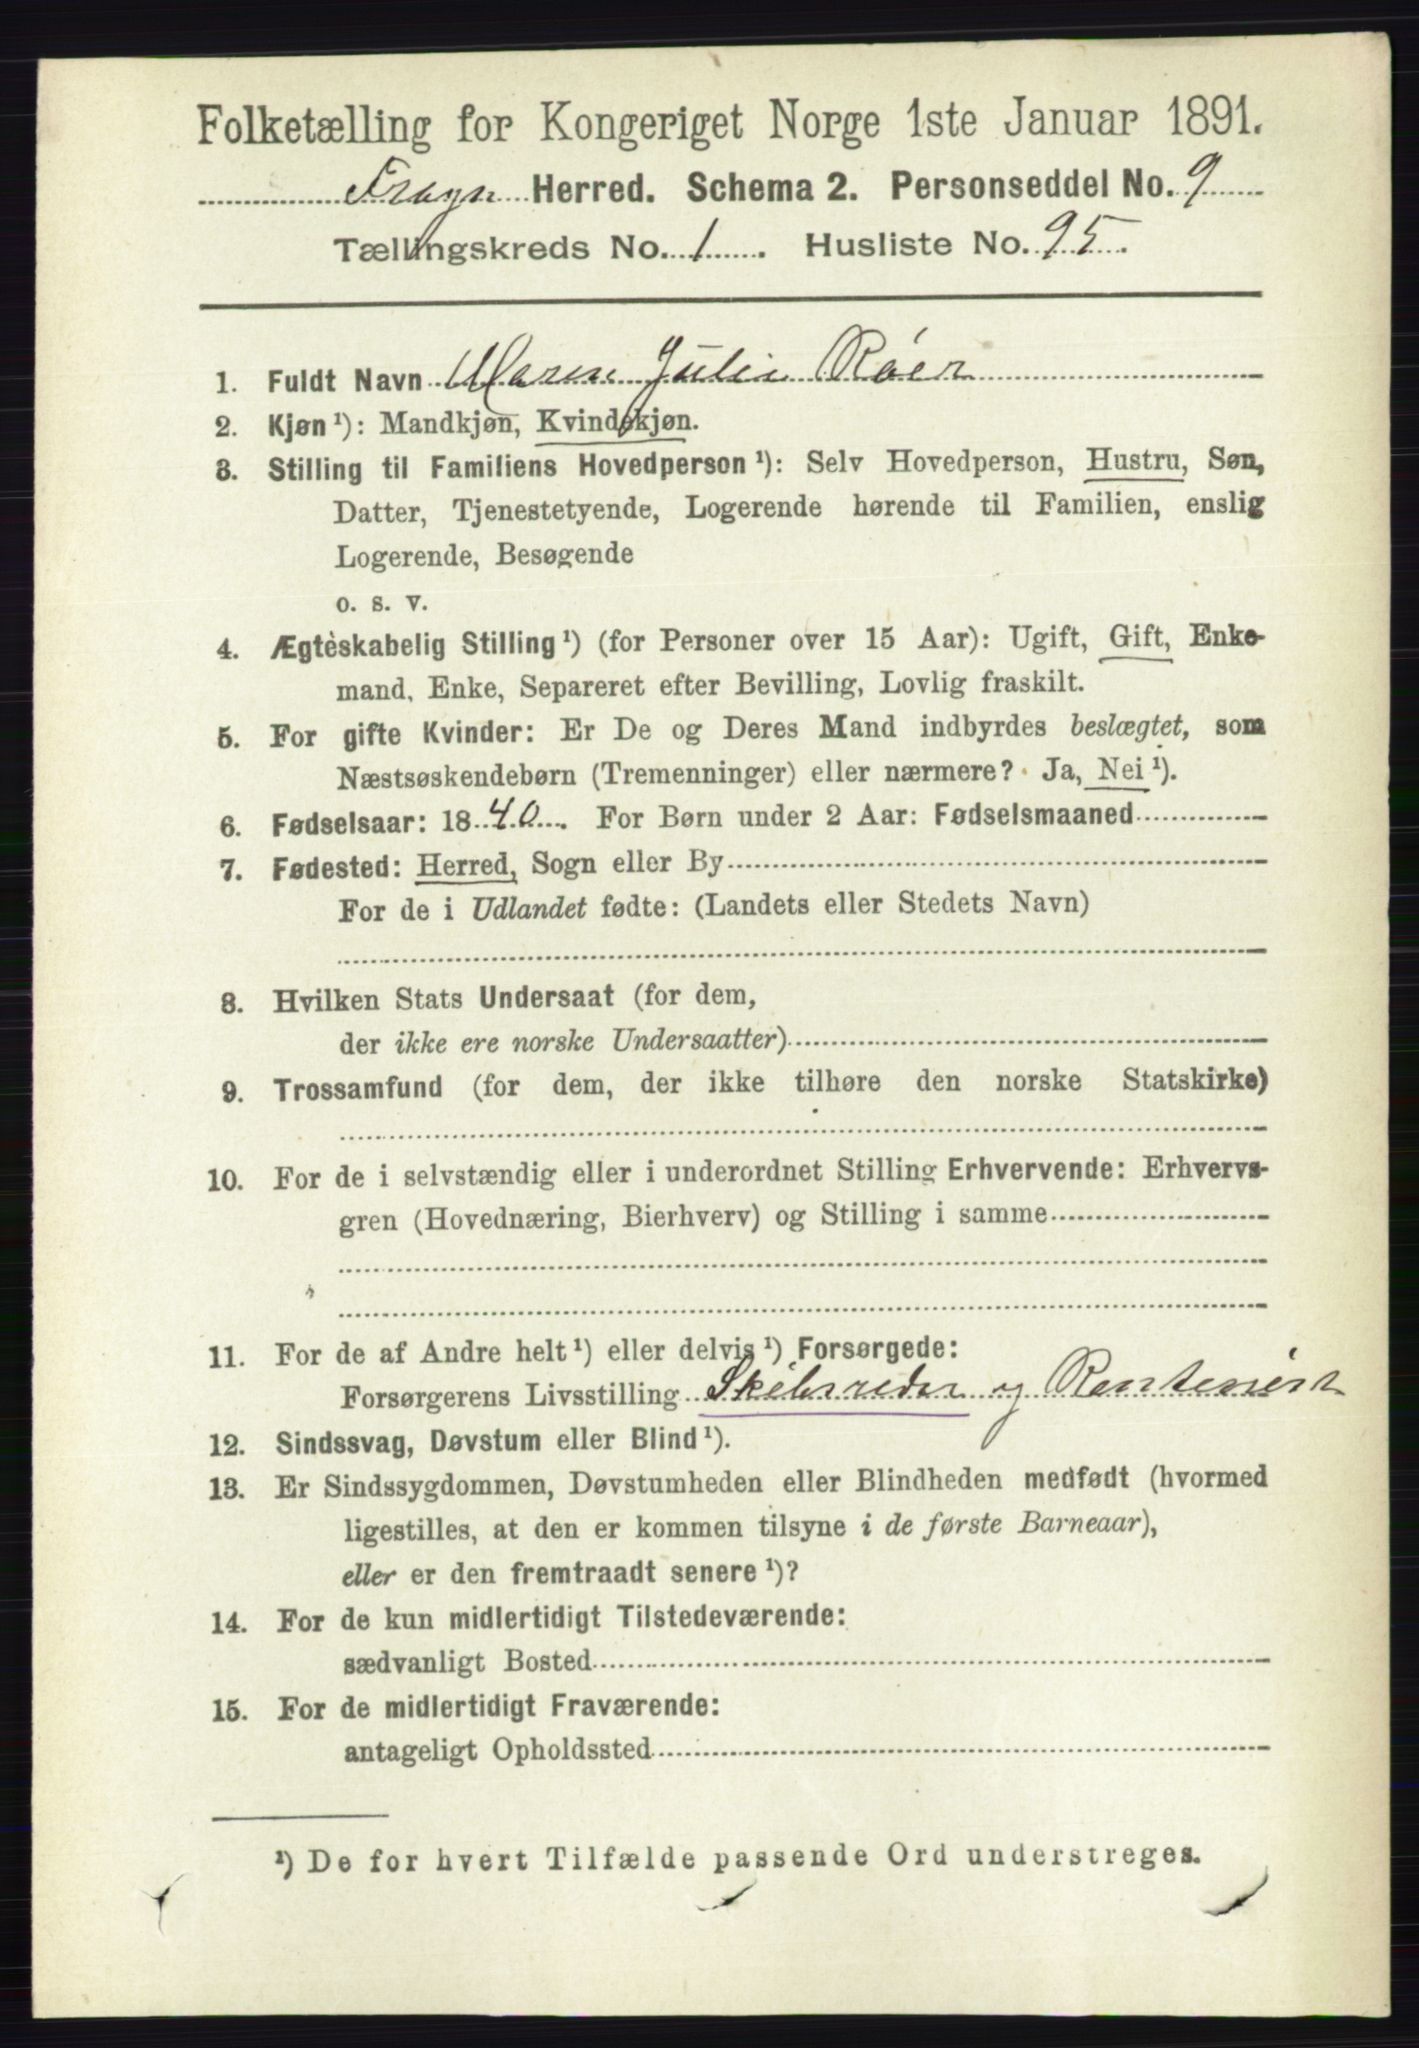 Folketælling for Kongeriget Norge 1ste Januar 1891.
Frogn Herred. Schema 2. Personseddel No. 9
Tællingskreds No. 1. Husliste No. 95.
1. Fuldt Navn Maren Julie Röer
2. Kjøn ¹): Mandkjøn, Kvindekjøn.
3. Stilling til Familiens Hovedperson ¹): Selv Hovedperson, Hustru, Søn,
Datter, Tjenestetyende, Logerende hørende til Familien, enslig
Logerende, Besøgende
o. s. v.
4. Ægteskabelig Stilling ¹) (for Personer over 15 Aar): Ugift, Gift, Enke-
mand, Enke, Separeret efter Bevilling, Lovlig fraskilt.
5. For gifte Kvinder: Er De og Deres Mand indbyrdes beslægtet, som
Næstsøskendebørn (Tremenninger) eller nærmere? Ja, Nei ¹).
6. Fødselsaar: 1840. For Børn under 2 Aar: Fødselsmaaned
7. Fødested: Herred, Sogn eller By
For de i Udlandet fødte: (Landets eller Stedets Navn)
8. Hvilken Stats Undersaat (for dem,
der ikke ere norske Undersaatter)
9. Trossamfund (for dem, der ikke tilhøre den norske Statskirke)
10. For de i selvstændig eller i underordnet Stilling Erhvervende: Erhvervs-
gren (Hovednæring, Bierhverv) og Stilling i samme
11. For de af Andre helt ¹) eller delvis ¹) Forsørgede:
Forsørgerens Livsstilling Skibsreder og Rentenist
12. Sindssvag, Døvstum eller Blind ¹).
13. Er Sindssygdommen, Døvstumheden eller Blindheden medfødt (hvormed
ligestilles, at den er kommen tilsyne i de første Barneaar),
eller er den fremtraadt senere ¹)?
14. For de kun midlertidigt Tilstedeværende:
sædvanligt Bosted
15. For de midlertidigt Fraværende:
antageligt Opholdssted
¹) De for hvert Tilfælde passende Ord understreges.